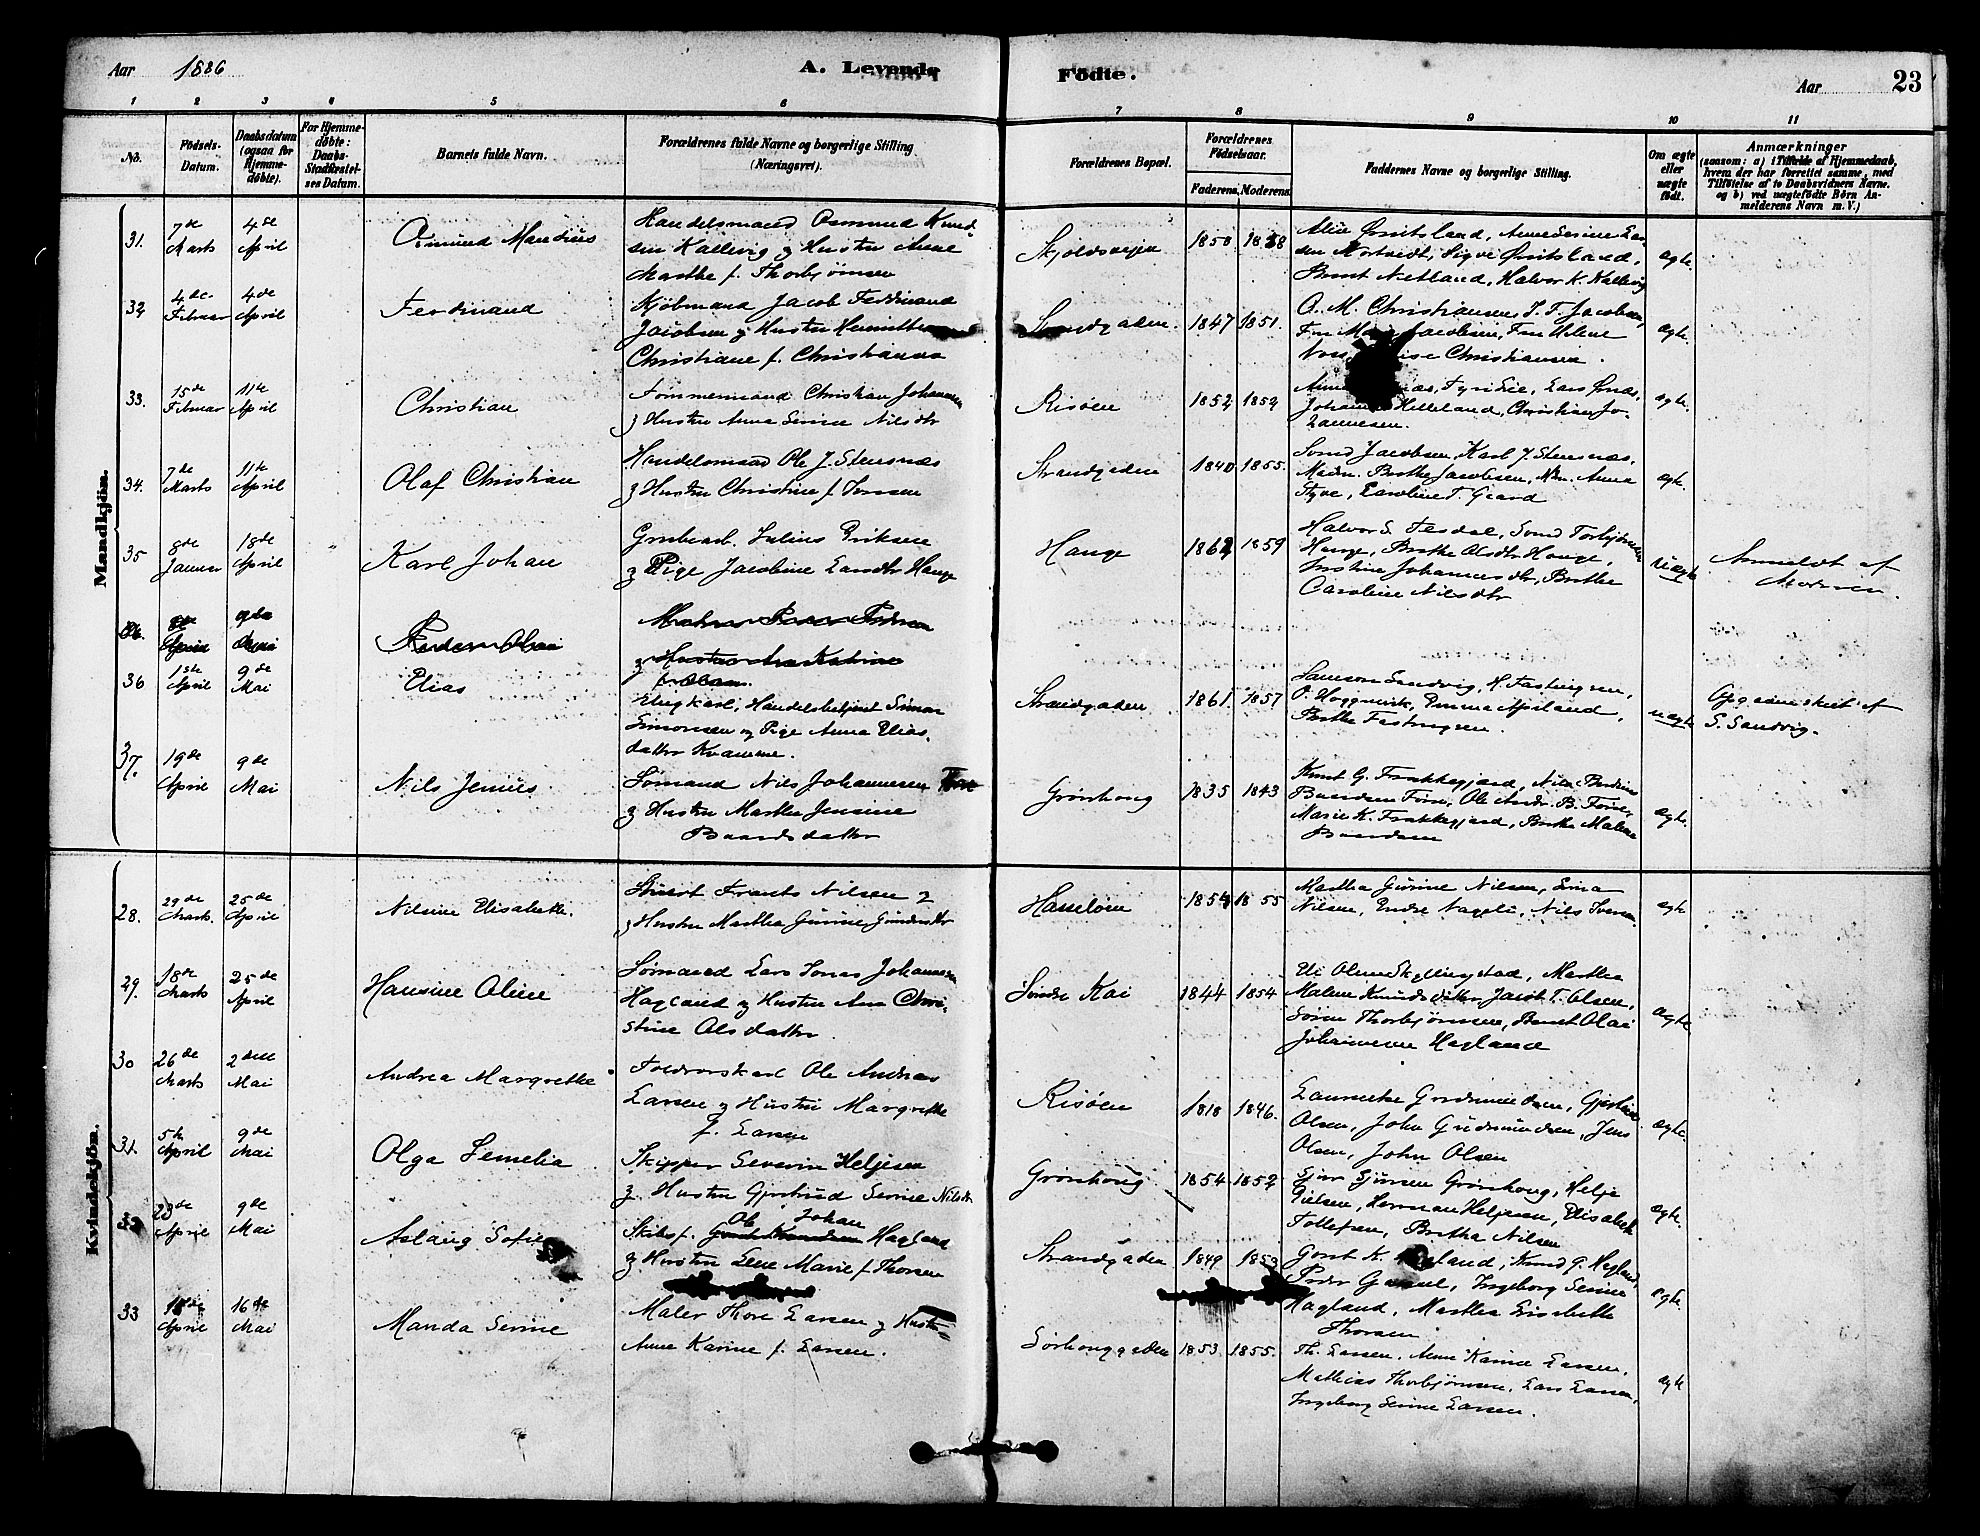 Aar 1886
A. Levende
Födte.
Aar
23
1 2 3 4 5 6 7 8 9 10 11
No.
Fødsels-Datum.
Daabsdatum (ogsaa for Hjemme-døbte).
For Hjemme-døbte: Daabs-Stadfæstel-ses Datum.
Barnets fulde Navn.
Forældrenes fulde Navne og borgerlige Stilling (Næringsvei).
Forældrenes Bopæl.
Forældrenes Fødselsaar.
Faderens. Moderens.
Faddernes Navne og borgerlige Stilling.
Om ægte eller uægte født.
Anmærkninger
(saasom: a) i Tilfælde af Hjemmedaab, hvem der har forrettet samme, med Tilføielse af to Daabsvidners Navne, og b) ved uægtefødte Børn Anmelderens Navn m. V.)
Mandkjön.
31. 7de Marts 4de April
Osmund Mandius
Handelsmand Osmund Knud-
sen Kallevig og Hustru Anne
Marthe f. Thorbjørnsen
Skjoldaveien 1858 1858
Sigve Østrisland,
Berent Nielland, Halvor K. Kallevig
ægte.
32 4de Februar 4de April
Ferdinand
Kjøbmand Jacob Ferdinand
Jacobsen og Hustru
Christiane f. Christiansen
Strandgaden. 1847 1851.
O. M. Christiansen, J. F. Jacobsen,
Fru Jacobsen, Fru Helene
Christiansen.
ægte.
33. 15de Februar 11te April
Christian
Tømmermand Christian Johannesen
og Hustru Anna Serine Nilsdtr
Risøen 1852 1859
Lars Ønæs,
Helleland, Christian Jo-
hannesen.
ægte.
34. 7de Marts 11te April
Olaf Christian
Handelsmand Ole J. Stensnæs
og Hustru Christine f. Jensen
Strandgaden 1840 1855.
Svend Jacobsen, Karl J. Stensnæs,
Madm. Berthe Jacobsen, Mdm. Anna
Tyve, Caroline T. Gaard
ægte.
35 8de Januar 18de April
Karl Johan
Grubearb. Julius Eriksen
og Pige Jacobine Larsdtr Hauge
Hauge 1862 1859
Halvor S. Flesdal, Svend Torbjørnsen
Hauge, Berthe Olsdtr Hauge,
Johannesdtr, Berthe
Caroline Nilsdtr
uægte
Anmeldt af
Moderen.
36 1ste April 9de Mai
Elias
Ungkarl, Handelsbetjent Simon
Simonsen og Pige Anna Elias-
datter Kvamme.
Strandgaden 1861 1857
Samson Sandvig, H. Fastingsen,
O. Haggmark, Emma Apeland,
Berthe Fastingsen.
uægte
Opgaven skeet af
S. Sandvig.
37. 19de April 9de Mai
Nils Jenius
Sømand Nils Johannesen
og Hustru Marthe Jensine
Baardsdatter
Grønhoug 1835 1843
Knut G. Frakkagjærd,
Baardsen Førre, Ole Andr. B. Førre,
Marie K. Frakkagjærd, Berthe Malene
Baardsen
ægte.
Kvindekjön.
28. 29de Marts. 25de April
Nilsine Elisabeth.
Frants Nilsen
og Hustru Martha Gurine Gundersdtr
Hasseløen 1854 1855
Martha Gurine Nilsen, Sina
Nilsen, Endre Nageli, Nils Iversen
ægte
29. 18de Marts 25de April
Hansine Oline
Sømand Lars Jonas Johannesen
Hagland og Hustru Ane Chri-
stine Olsdatter.
Søndre Kai 1844 1854
Martha
Malene Knudsdatter, Jacob T. Olsen,
Sören Thorbjørnsen, Berent Olai
Johannesen Hagland
ægte
30 26de Marts 2den Mai
Andrea Margrethe
Toldrorskarl Ole Andreas
Larsen og Hustru Margrethe
f. Larsen
Risøen 1818 1846.
Gudmundsen,
Olsen, John Gudmundsen, Jens
Olsen, John Olsen
ægte.
31. 5te April 9de Mai
Olga Semelia
Skipper Severin Heljesen
og Hustru Gjertrud Serine Nilsdtr
Grønhoug 1854 1852
Grønhoug, Helje
Nielsen, Herman Heljesen, Elisabeth
Tollefsen, Bertha Nilsen
ægte.
32 April 9de Mai
Aslaug Sofie
Skibsf. Ole Johan Hagland
og Hustru Lene Marie f. Thorsen
Strandgaden 1849 1853
Gort K. Hagland, Knud G. Hagland,
Peder Ingeborg Serine
Hagland, Martha Lisebette
Thorsen
ægte.
33 18de April 16de Mai
Manda Serine
Maler Thore Larsen og Hustru
Anne Karine f. Larsen.
Sørhauggaden 1853. 1855.
Th. Larsen, Anne Karine Larsen,
Mathias Thorbjørnsen, Lars Larsen,
Ingeborg Serine Larsen.
ægte